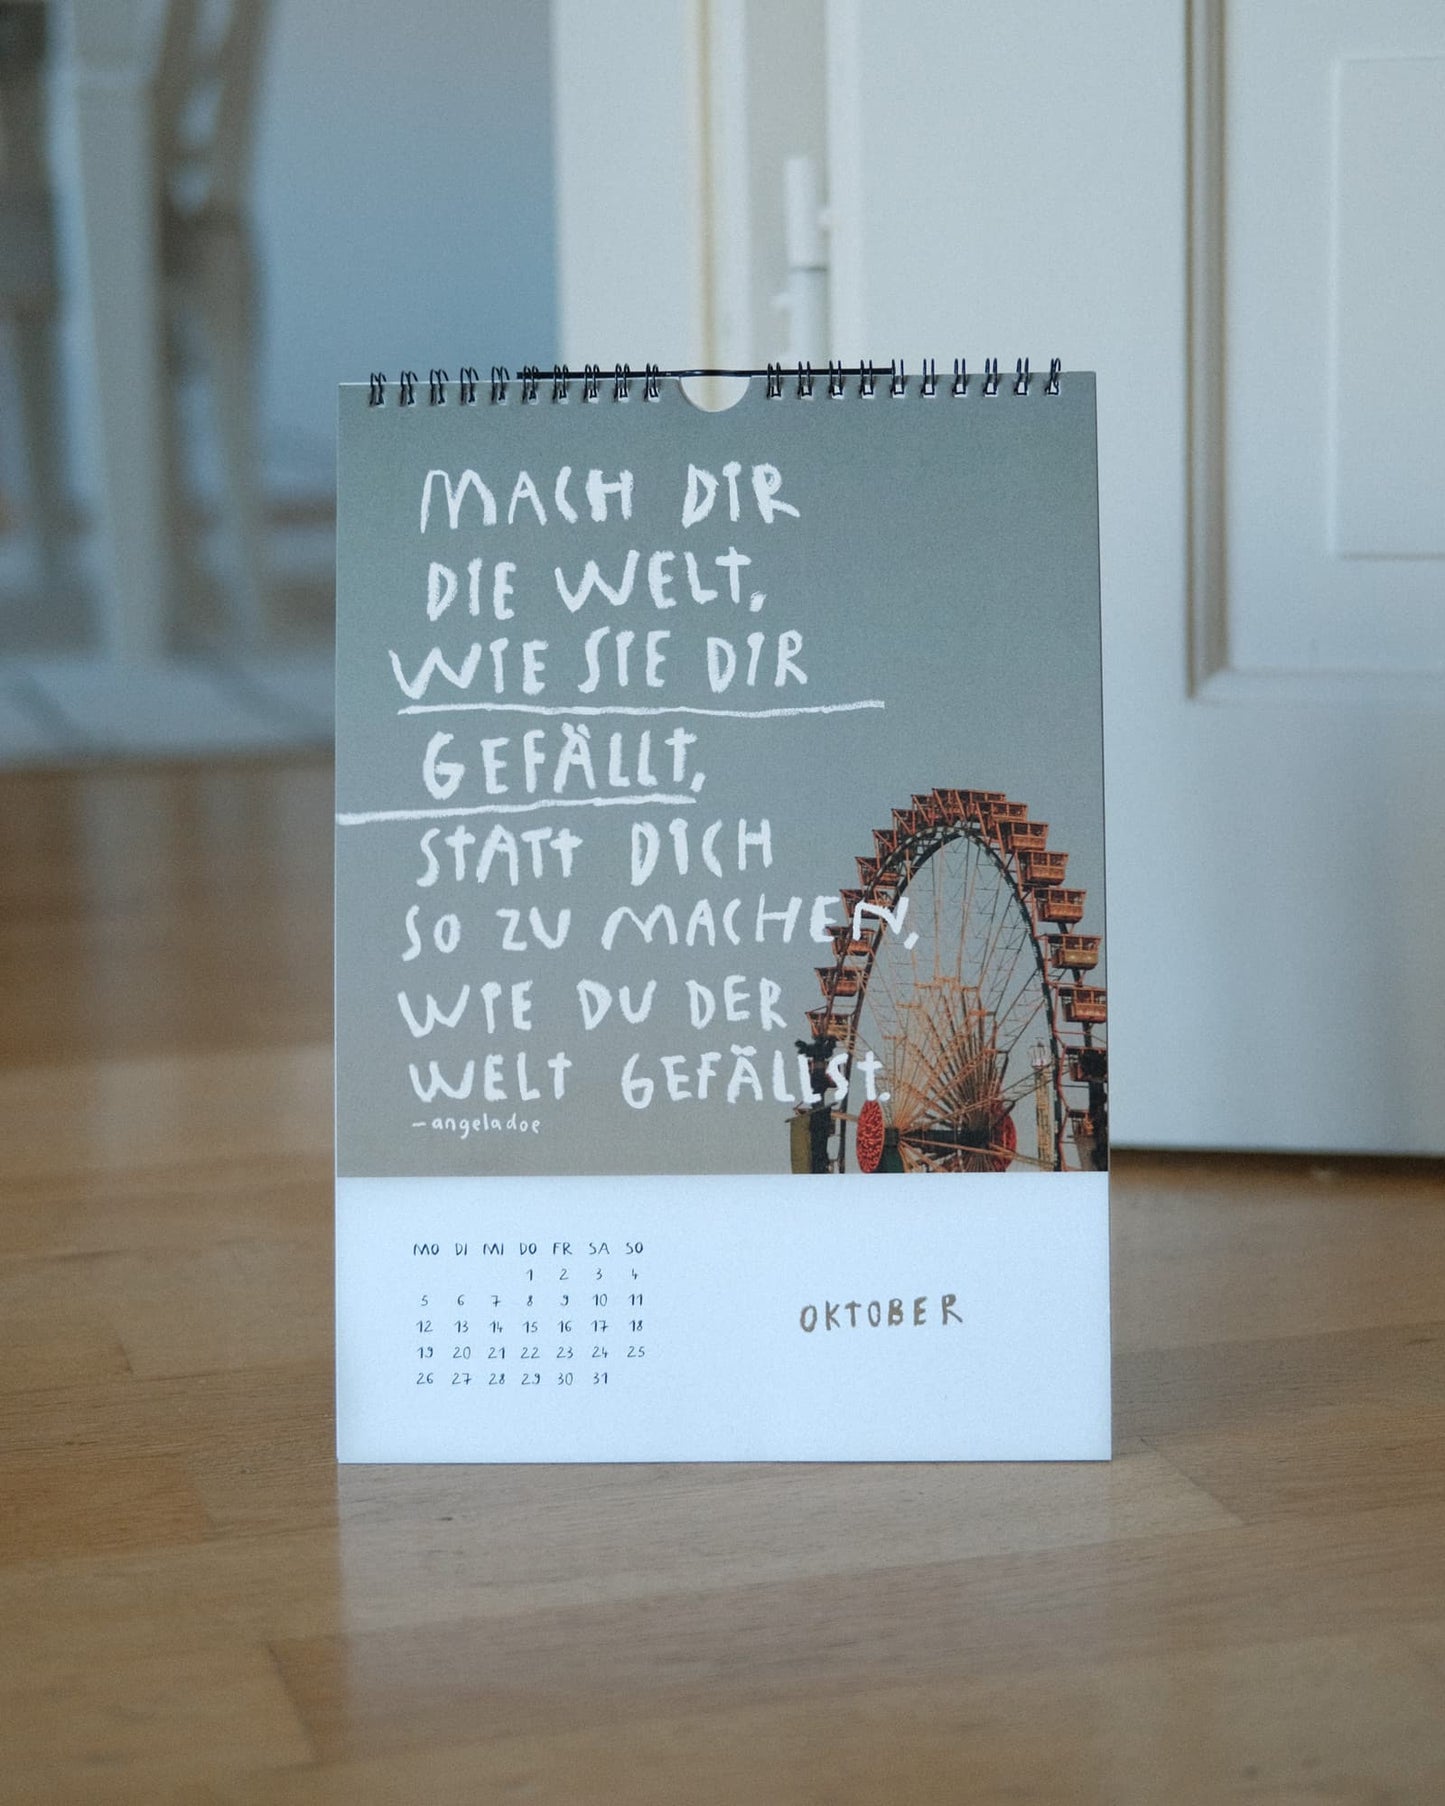 MACH DIR
DIE WELT,
WIE SIE DIR
GEFÄLLT,
STATT DICH
SO ZU MACHEN,
WIE DU DER
WELT GEFÄLLST.
– angeladoe
MO DI MI DO FR SA SO
1 2 3 4
5 6 7 8 9 10 11
12 13 14 15 16 17 18
19 20 21 22 23 24 25
26 27 28 29 30 31
OKTOBER